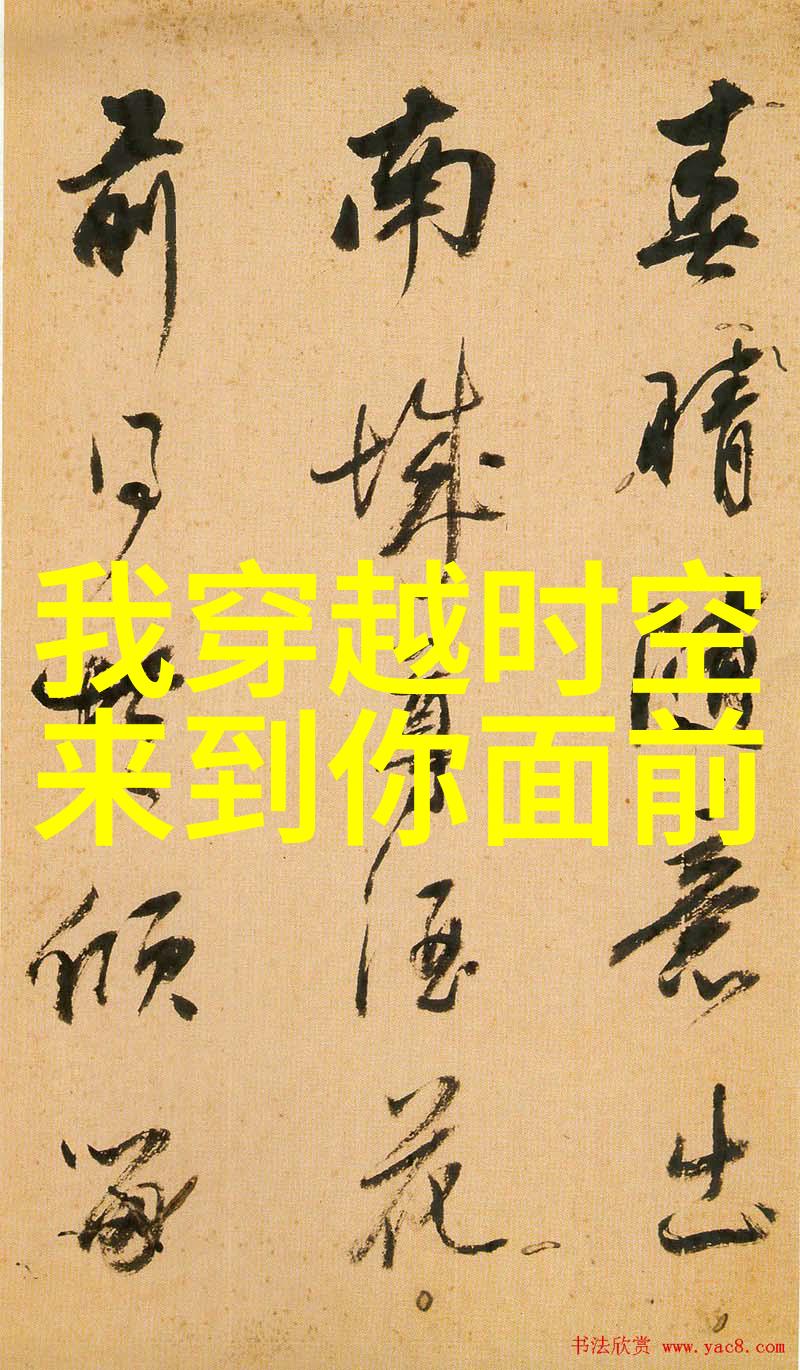 春晴随意出
南城尋酒花
前日
傾
我穿越时空
来到你面前
书法欣赏 www.yac8.com